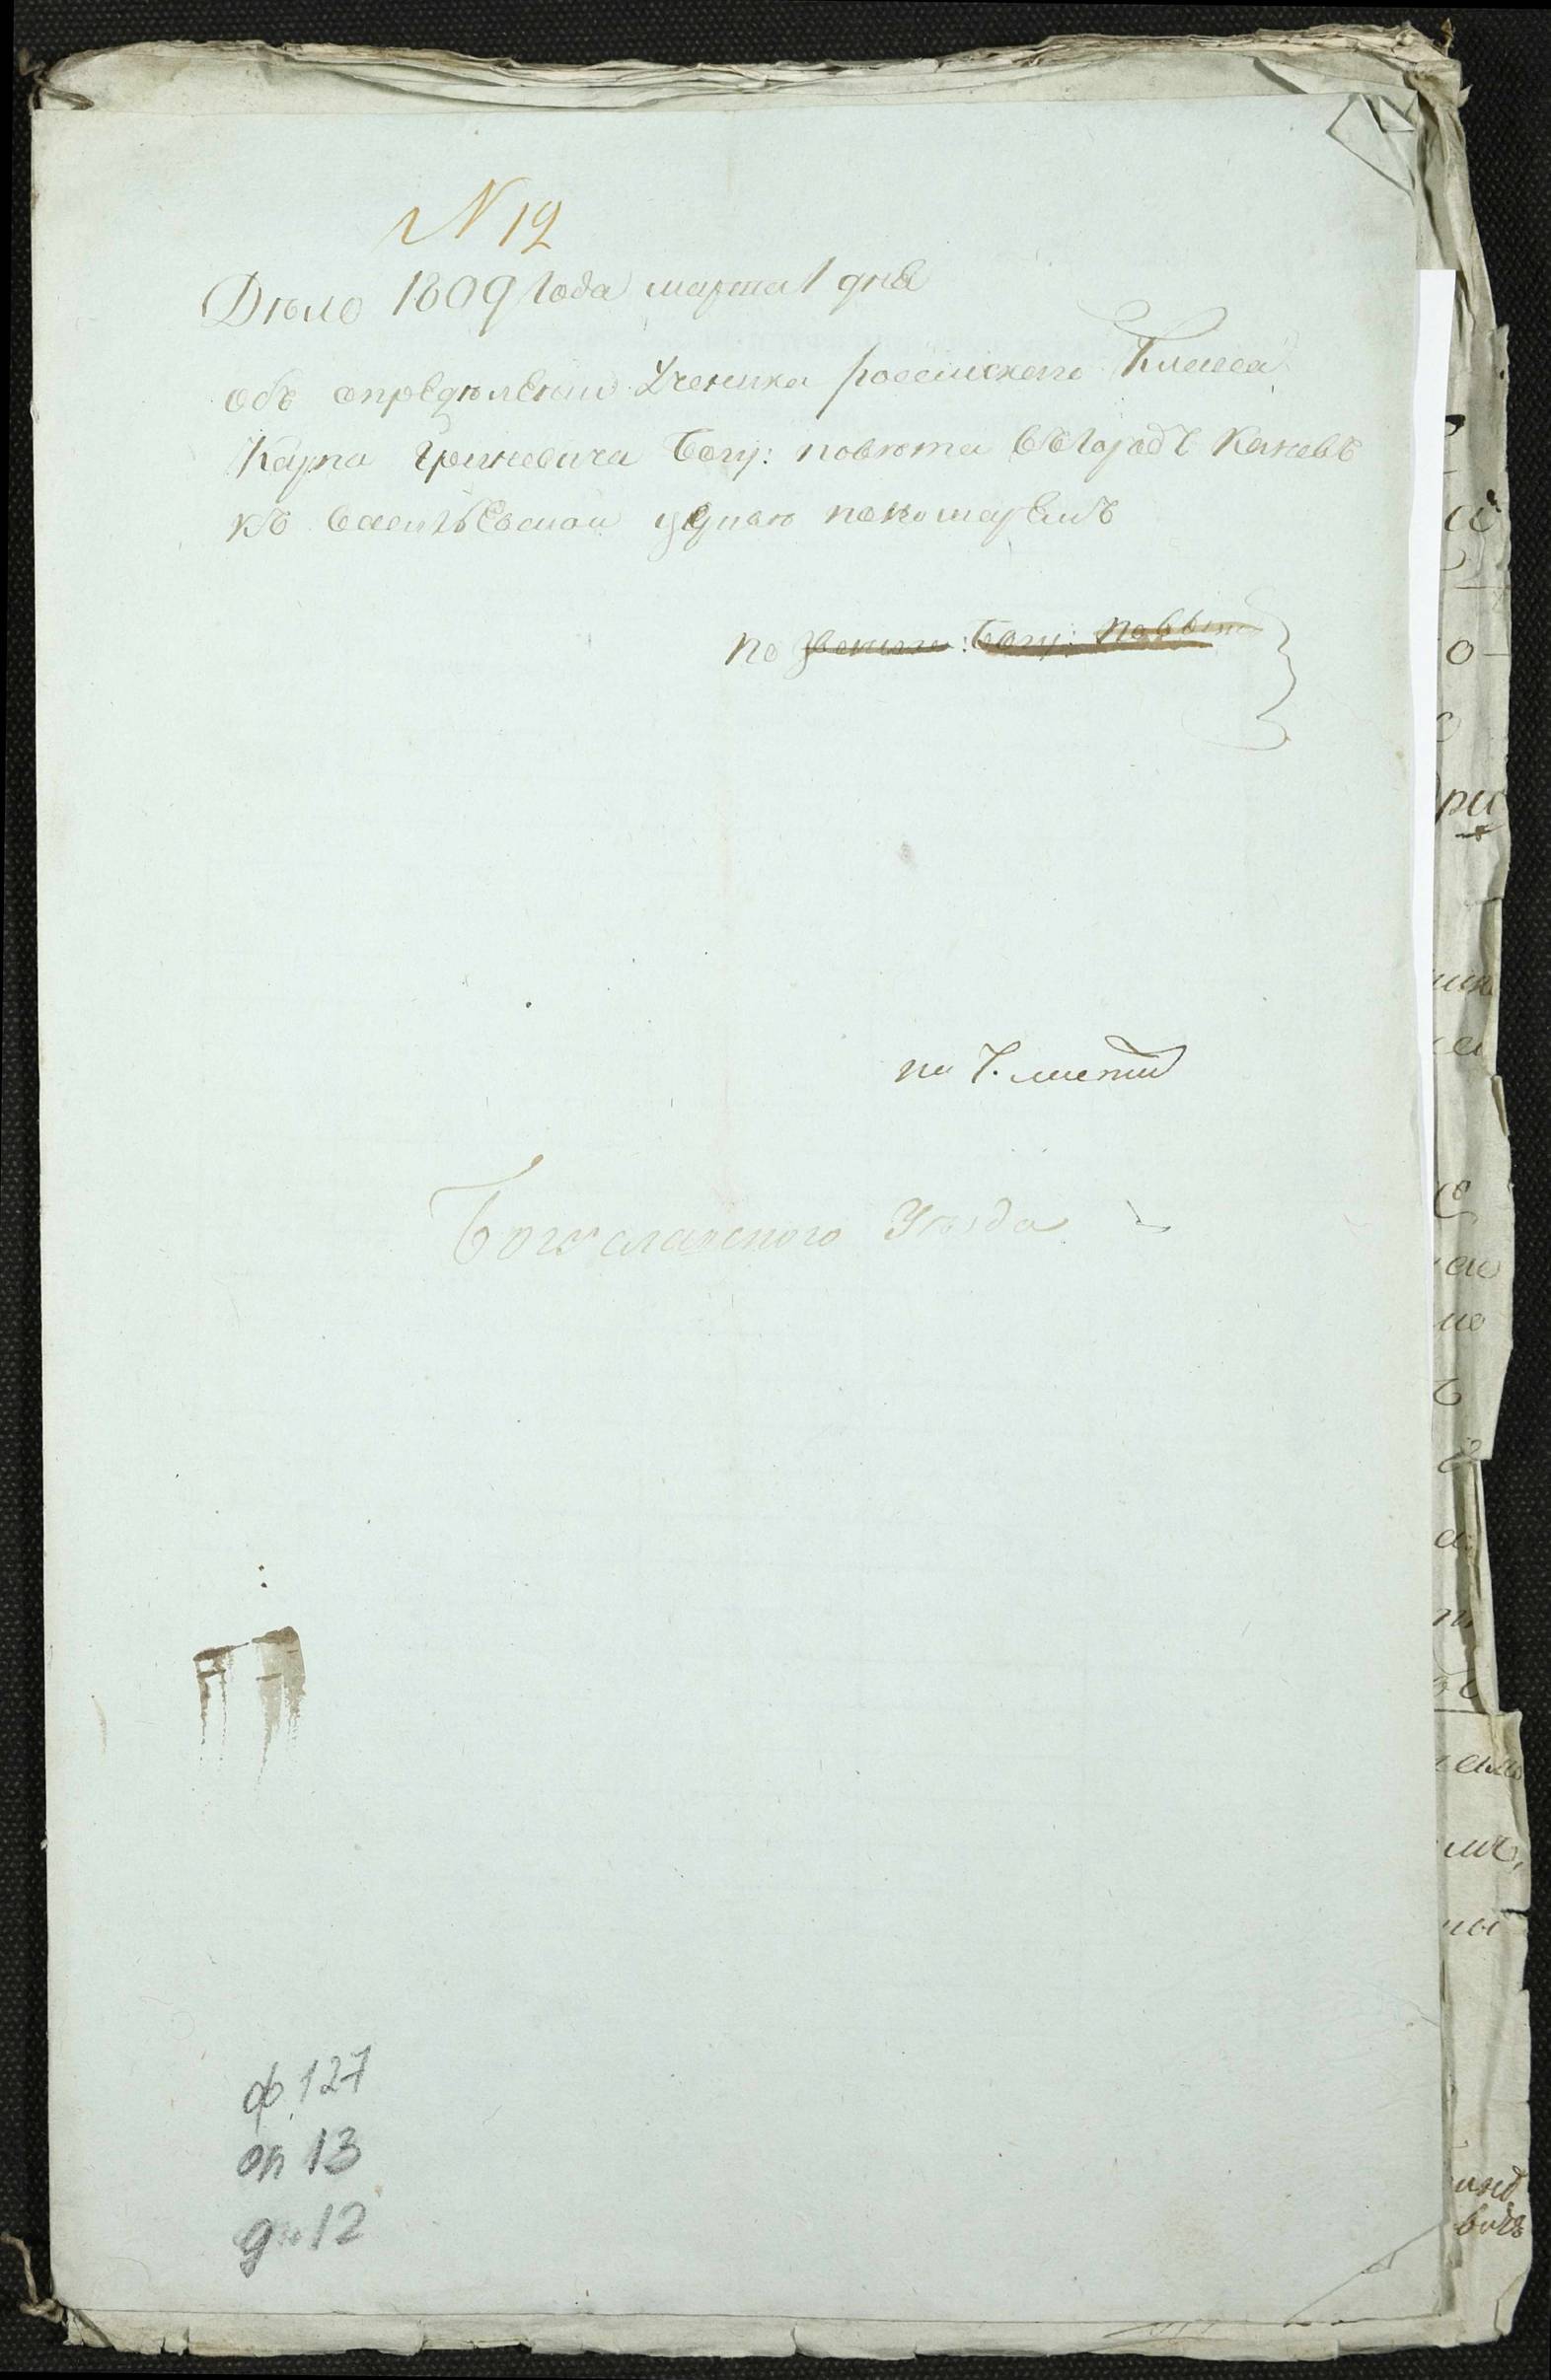 N 12
Дѣло 1809 Года марта 1 дня
объ опредѣлении Ученика российскаго Класса
Карпа Гриневича Богу: повѣта въ Городѣ Каневѣ
къ Василѣевской церквѣ пономаремъ
по Богу: повѣту
на 7. листа
Богуславскаго Уѣзда
ф. 127
оп 13
д. 12